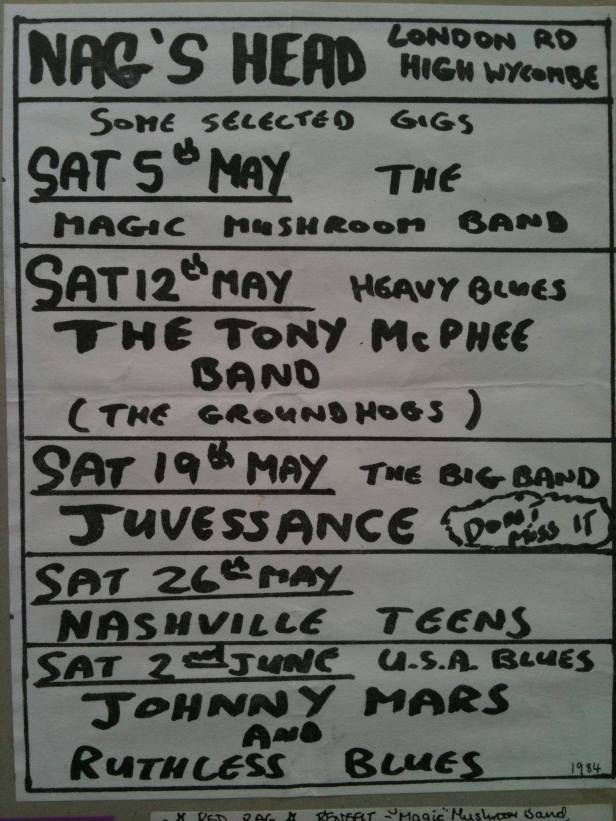 NAG'S HEAD
LONDON RD
HIGH WYCOMBE
SOME SELECTED GIGS
SAT 5th MAY THE
MAGIC MUSHROOM BAND
SAT 12th MAY HEAVY BLUES
THE TONY McPHEE
BAND
(THE GROUNDHOGS)
SAT 19th MAY THE BIG BAND
JUVESSANCE
DON'T
MISS IT
SAT 26th MAY
NASHVILLE TEENS
SAT 2nd JUNE U.S.A. BLUES
JOHNNY MARS
AND
RUTHLESS BLUES
1984
RED RAG BENEFIT - "Magic" Mushroom Band,